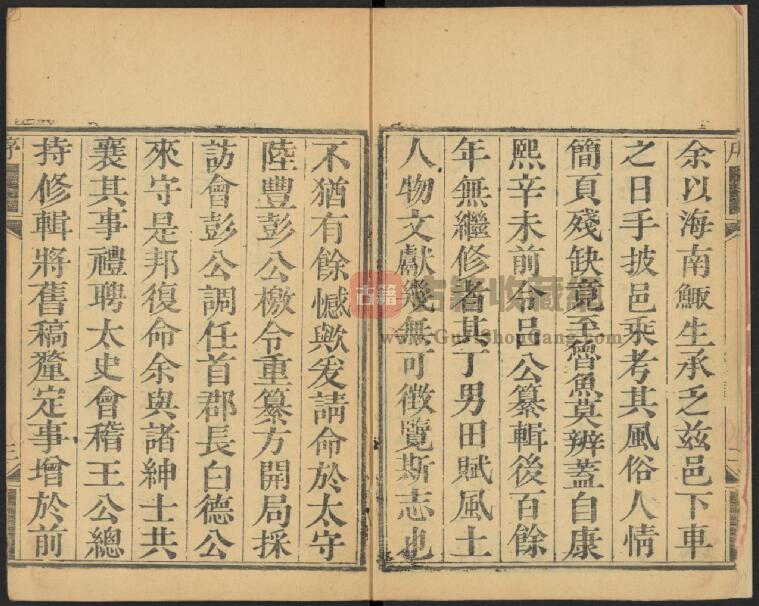 余以海南鯫生承乏兹邑下車
之日手披邑乘考其風俗人情
簡頁殘缺竟至魯魚莫辨蓋自康
熙辛未前令呂公纂輯後百餘
年無繼修者其丁男田賦風土
人物文獻幾無可徵覽斯志也
不猶有餘憾歟爰請命於太守
陸豐彭公檄令重纂方開局採
訪會彭公調任首郡長白德公
來守是邦復命余與諸紳士共
襄其事禮聘太史會稽王公總
持修輯將舊稿釐定事增於前
序
三
序
二
古籍
www.GuJiShouCang.com